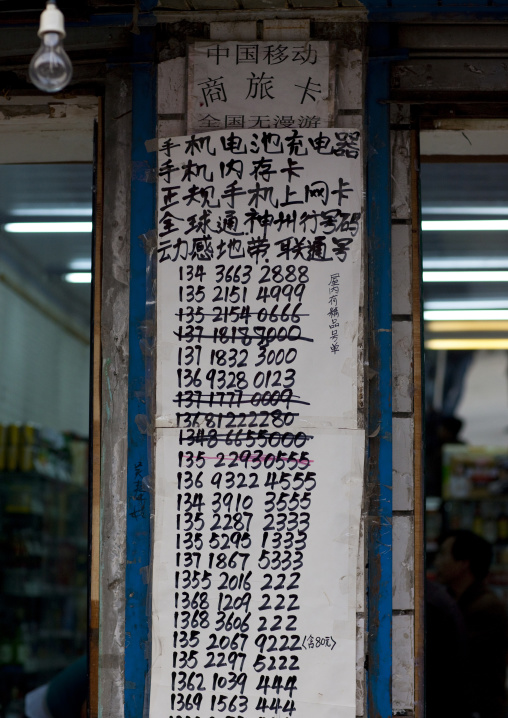 中国移动
商旅卡
全国无漫游
手机电池充电器
手机内存卡
正规手机上网卡
全球通神州行号码
动感地带.联通号
134 3663 2888
135 2151 4999
135 2154 0666
137 1818 7000
137 1832 3000
136 9328 0123
1371777 0009
13681222280
1348 6655000
135 22930555
136 9322 4555
134 3910 3555
135 2287 2333
135 5295 1333
1371867 5333
1355 2016 222
1368 1209 222
1368 3606 222
135 2067 9222(含80元)
135 2297 5222
1362 1039 444
1369 1563 444
屋内有精品号单